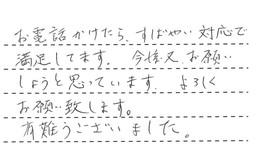 お電話かけたら、すばやい対応で
満足してます。今後又、お願い
しようと思っています。よろしく
お願い致します。
有難うございました。